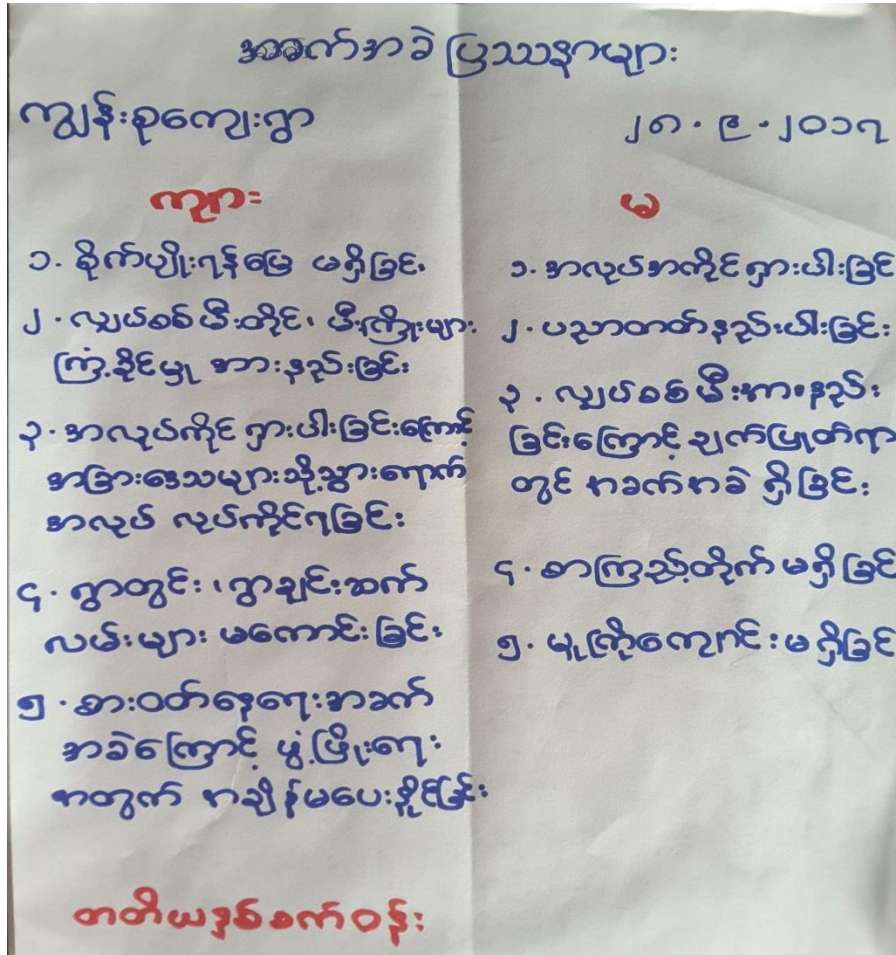 အခက်အခဲ ပြဿနာများ
ကျွန်းစုကျေးရွာ
၂၈.၉.၂၀၁၇
ကျား
၁. စိုက်ပျိုးရန်မြေ မရှိခြင်း
၂. လျှပ်စစ်မီးတိုင်၊ မီးကြိုးများ
ကြံ့ခိုင်မှု အားနည်းခြင်း
၃. အလုပ်ကိုင် ရှားပါးခြင်းကြောင့်
အခြားဒေသများသို့သွားရောက်
အလုပ် လုပ်ကိုင်ရခြင်း
၄. ရွာတွင်း၊ ရွာချင်းဆက်
လမ်းများ မကောင်းခြင်း
၅. စားဝတ်နေရေးအခက်
အခဲကြောင့် ဖွံ့ဖြိုးရေး
အတွက် အချိန်မပေးနိုင်ခြင်း
မ
၁. အလုပ်အကိုင်ရှားပါးခြင်း
၂. ပညာတတ်နည်းပါးခြင်း
၃. လျှပ်စစ်မီးအားနည်း
ခြင်းကြောင့် ချက်ပြုတ်ရာ
တွင် အခက်အခဲ ရှိခြင်း
၄. စာကြည့်တိုက်မရှိခြင်
၅. မူကြိုကျောင်းမရှိခြင်
တတိယနှစ်စက်ဝန်း